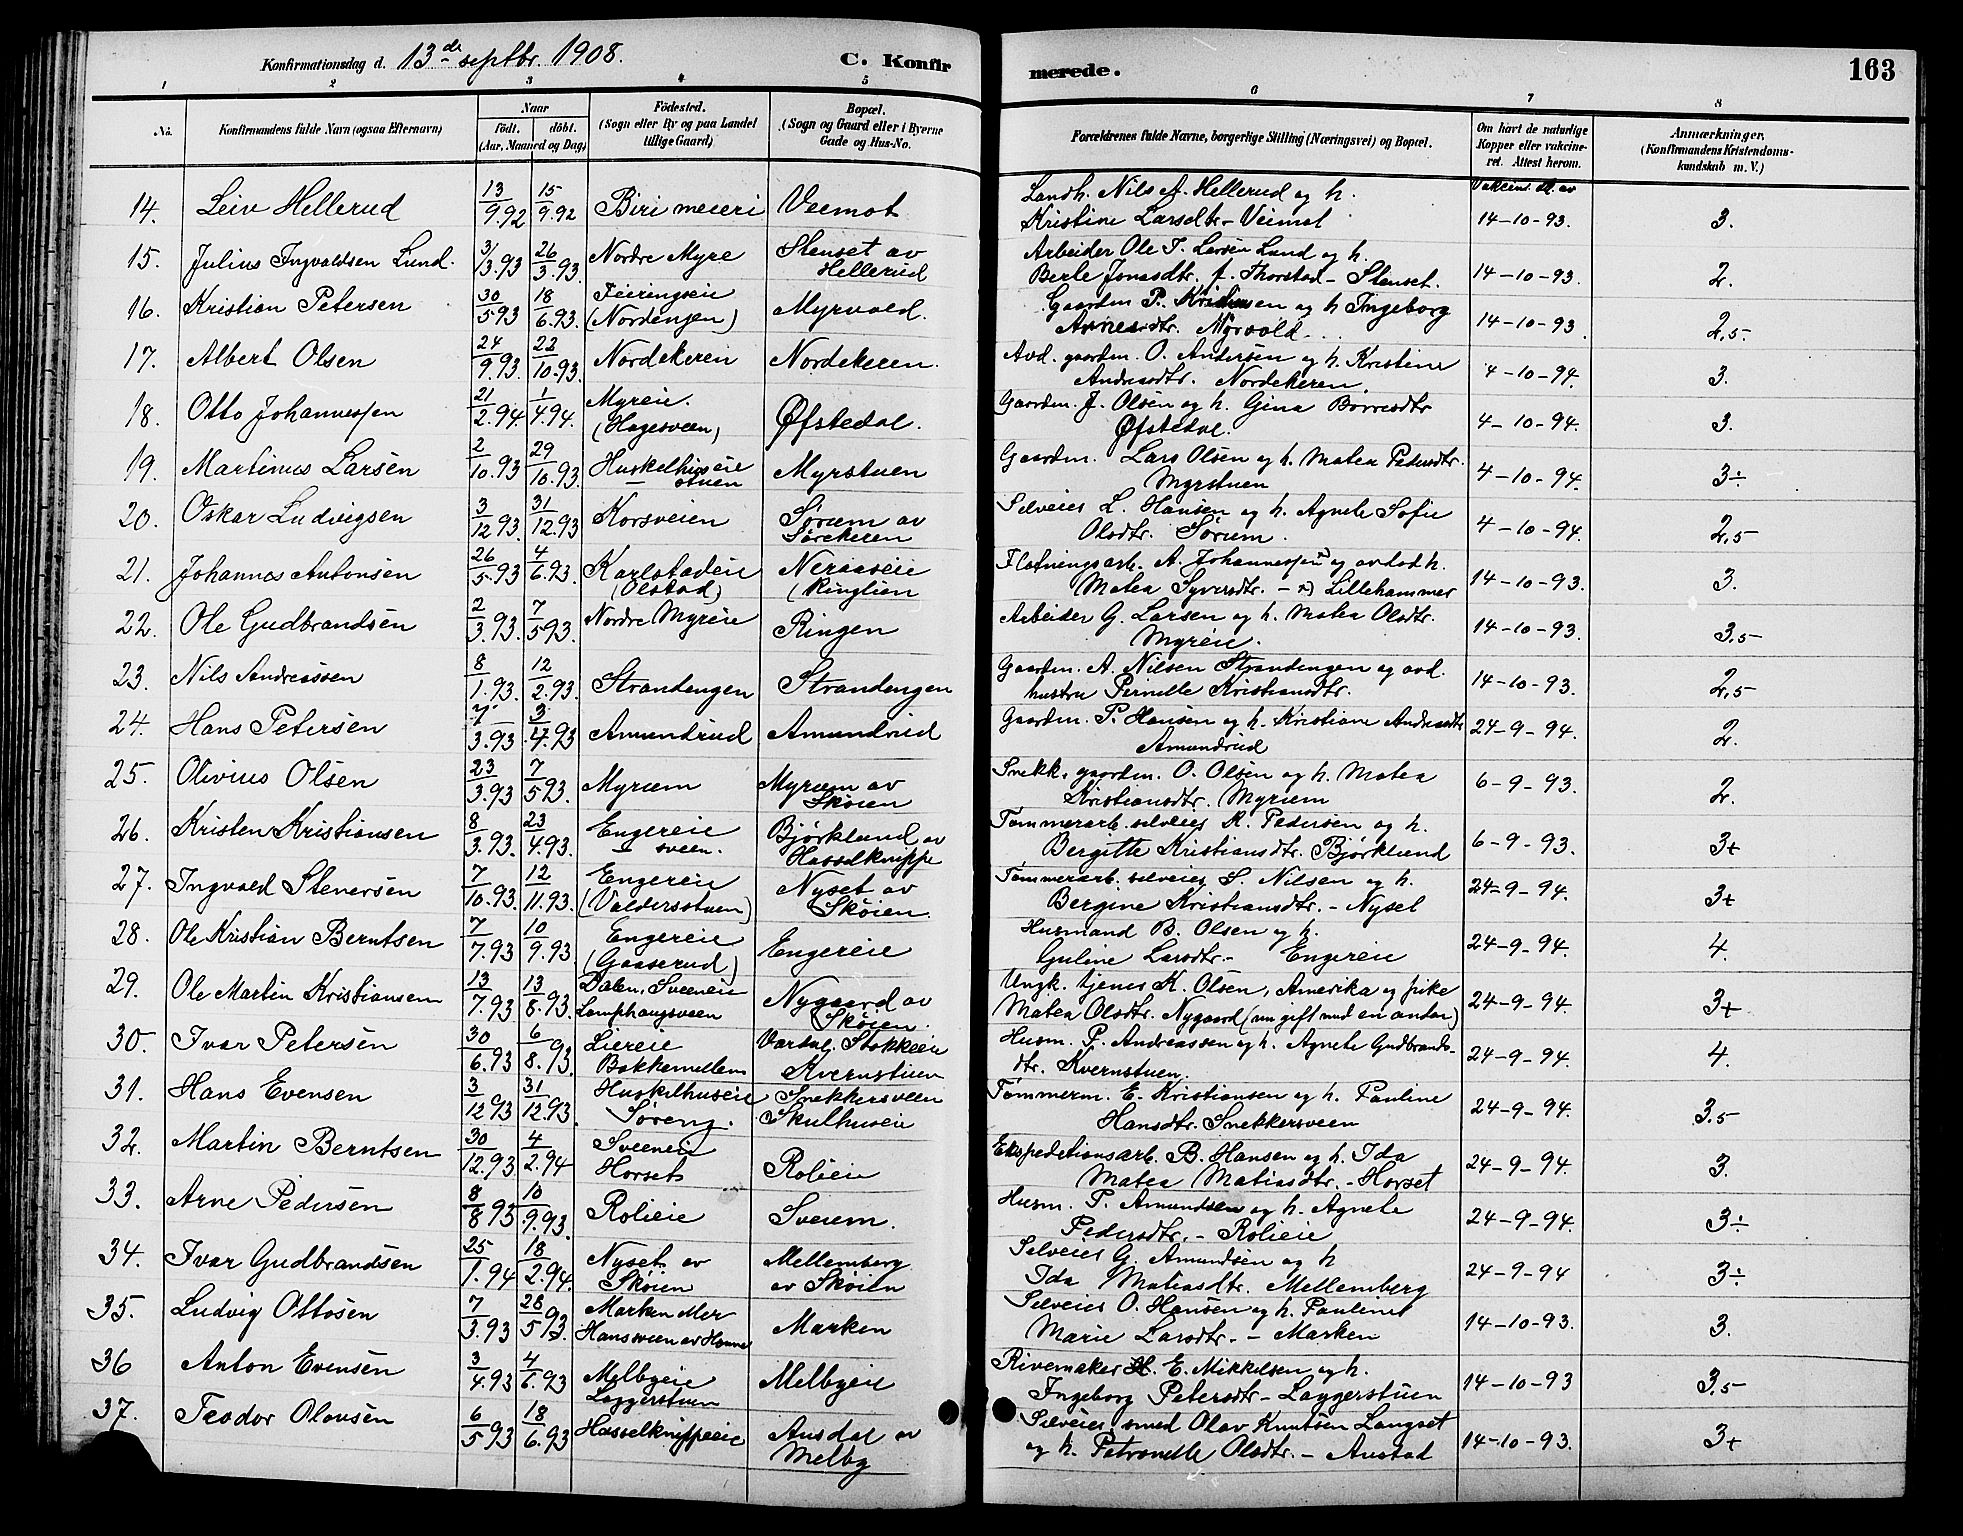 Konfirmationsdag d. 13de septbr. 1908.
C. Konfirmerede.
163
1 2 3 4 5 6 7 8
No.
Konfirmandens fulde Navn (ogsaa Efternavn)
Naar
födt. döbt.
(Aar, Maaned og Dag)
Födested.
(Sogn eller By og paa Landet
tillige Gaard)
Bopæl.
(Sogn og Gaard eller i Byerne
Gade og Hus-No.
Forældrenes fulde Navne, borgerlige Stilling (Næringsvei) og Bopæl.
Om havt de naturlige
Kopper eller vakcine-
ret. Attest herom.
Anmærkninger.
(Konfirmandens Kristendoms-
kundskab m. V.)
14. Leiv Hellerud 13/9.92 15/9.92 Biri meieri Veemot
Landh. Nils A. Hellerud og h.
Kristine Larsdtr. - Veimot
14-10-93. 3.
15. Julius Ingvaldsen Lund. 31/3.93 26/3.93 Nordre Myre Stenset av
Hellerud
Arbeider Ole J. Larsen Lund og h.
Berte Jonasdtr. f. Thorstad - Stenset.
14-10-93. 2.
16. Kristian Petersen 30/5 93 18/6.93. Feieringseie
(Nordengen) Myrvold.
Gaardm P. Kristiansen og h Ingeborg
Arnesdtr. Myrvold
14-10-93. 2,5.
17. Albert Olsen 24/9.93. 22/10.93. Nordekeren Nordekeren.
Avd. gaardm. O. Andersen og h. Kristine
Andreasdtr. Nordekeren.
4-10-94. 3.
18. Otto Johannessen 21/2.94. 1/4.94. Myreie.
(Hagesveen) Øfstedal.
Gaardm. J. Olsen og h. Gina Börresdtr
Øfstedal.
4-10-94. 3.
19. Martinus Larsen 2/10.93 29/10.93. Huskelhuseie
stuen Myrstuen
Gaardm. Lars Olsen og h. Matea Pedersdtr.
Myrstuen
4-10-94. 3÷
20. Oskar Ludvigsen 3/12 93. 31/12.93 Korsveien Sørum av
Sørekeren
Selveier L. Hansen og h. Agnete Sofie
Olsdtr. Sørum.
4-10-94. 2,5
21. Johannes Antonsen 26/5.93 4/6.93. Karlstadeie
(Olstad) Neraaseie
(Ringlien
Flötningsarb. A. Johannessen x) og avdød h.
Matea Syversdtr. - x) Lillehammer
14-10-93. 3.
22. Ole Gudbrandsen 2/3.93. 7/5 93. Nordre Myreie Ringen
Arbeider G. Larsen og h. Matea Olsdtr.
Myreie.
14-10-93. 3.5
23. Nils Andreassen 8/1.93. 12/2.93. Strandengen Strandengen
Gaardm. A. Nilsen Strandengen og avd.
hustru Pernille Kristiansdtr.
14-10-93. 2,5
24. Hans Petersen 7/3.93 3/4.93 Amundrud Amundrud
Gaardm. P. Hansen og h. Kristiane Andreasdtr
Amundrud
24-9-94. 2.
25. Olivius Olsen 23/3.93 7/5 93. Myrum Myrum av
Skøien
Snekk. gaardm. O. Olsen og h. Matea
Kristiansdtr. Myrum
6-9-93. 2.
26. Kristen Kristiansen 8/3.93. 23/4.93. Engereie
sveen. Bjørklund av
Hasselknippe
Tømmerarb. selveier K. Pedersen og h.
Bergitte Kristiansdtr. Bjørklund
6-9-93. 3+
27. Ingvald Stenersen 7/10.93. 12/11.93. Engereie
(Valdersstuen) Nyset av
Skøien.
Tømmerarb. selveier S. Nilsen og h.
Bergine Kristiansdtr. - Nyset
24-9-94. 3+
28. Ole Kristian Berntsen 7/7.93 10/9.93. Engereie
(Gaaserud) Engereie
Husmand B. Olsen og h.
Guline Larsdtr. - Engereie
24-9-94. 4.
29. Ole Martin Kristiansen 13/7.93 13/8.93. Dalen, Sveeneie
Lamphaugsveen Nygaard av
Skøien.
Ungk. tjener K. Olsen, Amerika og pike
Matea Olsdtr. Nygaard (nu gift med en anden)
24-9-94. 3+
30. Ivar Petersen 30/6.93 6/8.93. Liereie
Bakkemellem Vardal, Stokkeeie
Kvernstuen
Husm. P. Andreassen og h. Agnete Gudbrands-
dtr. Kvernstuen.
24-9-94. 4.
31. Hans Evensen 3/12 93 31/12.93. Huskelhuseie
Søreng. Snekkersveen
Skulhuseie
Tømmerm. E. Kristiansen og h. Pauline
Hansdtr. Snekkersveen
24-9-94. 3.5
32. Martin Berntsen 30/12.93 4/2.94 Sveeneie
Horset Rolieie
Ekspeditionsarb. B. Hansen og h. Ida
Matea Matiasdtr. - Horset
24-9-94. 3.
33. Arne Pedersen 8/8 93 10/9.93. Rolieie Sveum.
Husm. P. Amundsen og h. Agnete
Pedersdtr. - Rolieie
24-9-94. 3÷
34. Ivar Gudbrandsen 25/1.94 18/2.94. Nyset av
Skøien Mellemberg
av Skøien
Selveier G. Amundsen og h
Ida Matiasdtr. Mellemberg
24-9-94 3÷
35. Ludvig Ottosen 7/3.93 28/5 93. Marken
Hansveen av Marken
Selveier O. Hansen og h. Pauline
Marie Larsdtr. - Marken
14-10-93. 3.
36 Anton Evensen 3/4.93 4/6.93 Melbyeie
Laggerstuen Melbyeie
Rivemaker E. Mikkelsen og h.
Ingeborg Petersdtr - Laggerstuen
14-10-93 3,5
37. Teodor Olousen 6/5 93 18/6.93 Hasselknippeeie Ausdal av
Melby
Selveier, smed Olav Knutsen Langset
og h. Petronelle Olsdtr. - Austad
14-10-93. 3+